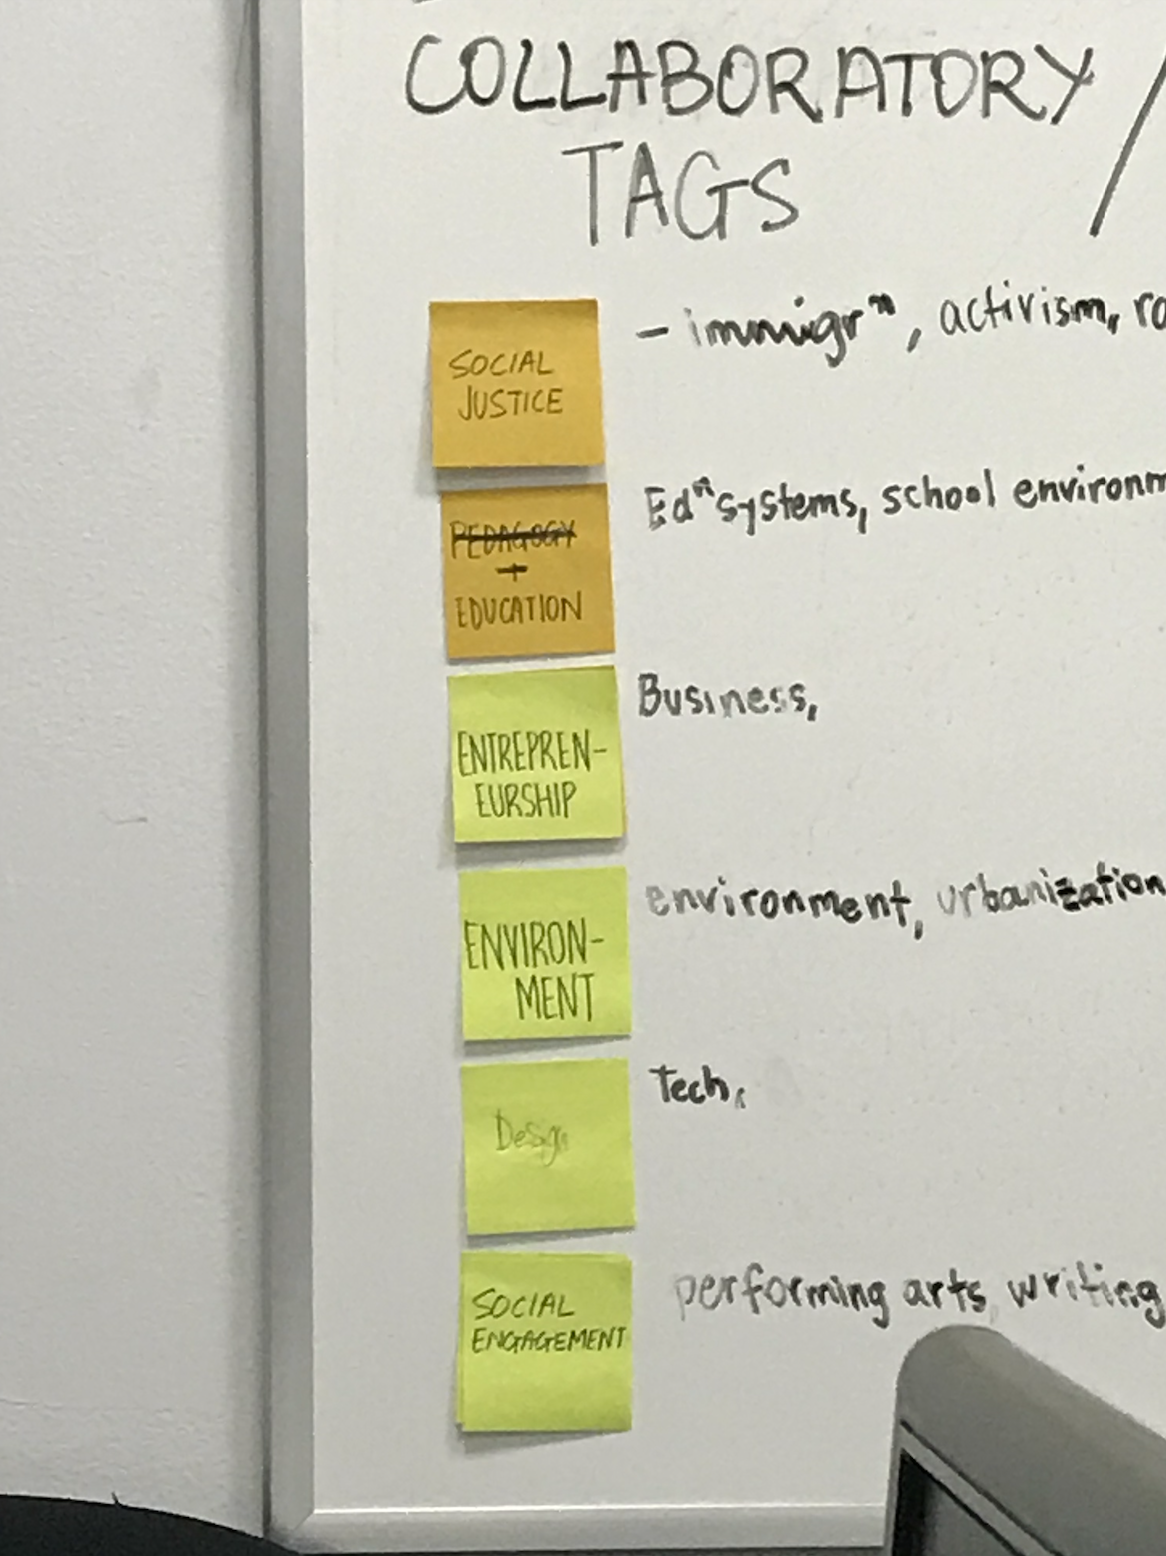 COLLABORATORY /
TAGS
SOCIAL
JUSTICE
– immigrⁿ, activism,
PEDAGOGY
+
EDUCATION
Edⁿ systems, school
ENTREPREN-
EURSHIP
Business,
ENVIRON-
MENT
environment, urbanization,
Design
Tech,
SOCIAL
ENGAGEMENT
performing arts, writing